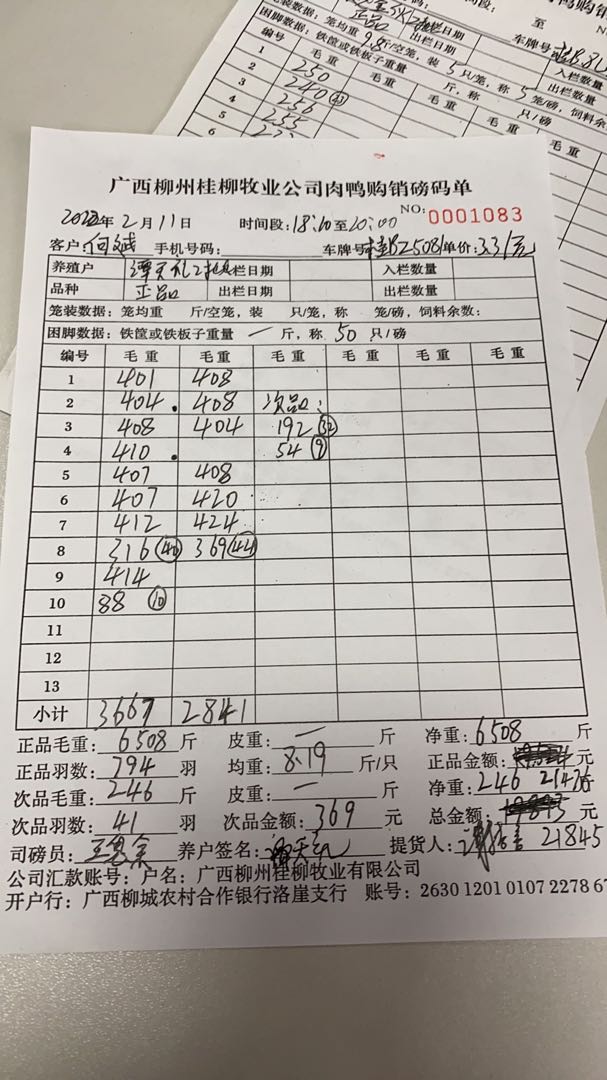 至
车牌号
笼装数据: 笼均重 9.8 斤/空笼, 装 5 只/笼, 称 5 笼/磅, 饲料余
正品
出栏日期
入栏数量
出栏数量
困脚数据: 铁筐或铁板子重量 斤, 称 只/磅
编号 毛重 毛重 毛重 毛重 毛重
1 250
2 240
3 256
4 255
5
6
广西柳州桂柳牧业公司肉鸭购销磅码单
NO: 0001083
2022年2月11日 时间段: 18:10至20:00
客户: 何斌 手机号码: 车牌号 桂B2508 单价: 3.3/元
养殖户 入栏日期 入栏数量
品种 正品 出栏日期 出栏数量
笼装数据: 笼均重 斤/空笼, 装 只/笼, 称 笼/磅, 饲料余数:
困脚数据: 铁筐或铁板子重量 一 斤, 称 50 只/磅
编号 毛重 毛重 毛重 毛重 毛重 毛重
1 401 408
2 404. 408 次品:
3 408 404 192 (32)
4 410. 54 (9)
5 407 408
6 407 420
7 412 424
8 316 (40) 369 (44)
9 414
10 88 (10)
11
12
13
小计 3667 2841
正品毛重: 6508 斤 皮重: 一 斤 净重: 6508 斤
正品羽数: 794 羽 均重: 8.19 斤/只 正品金额: 21476 元
次品毛重: 246 斤 皮重: 一 斤 净重: 246 斤
次品羽数: 41 羽 次品金额: 369 元 总金额: 21845 元
司磅员: 养户签名: 提货人:
公司汇款账号: 户名: 广西柳州桂柳牧业有限公司
开户行: 广西柳城农村合作银行洛崖支行 账号: 2630 1201 0107 2278 67